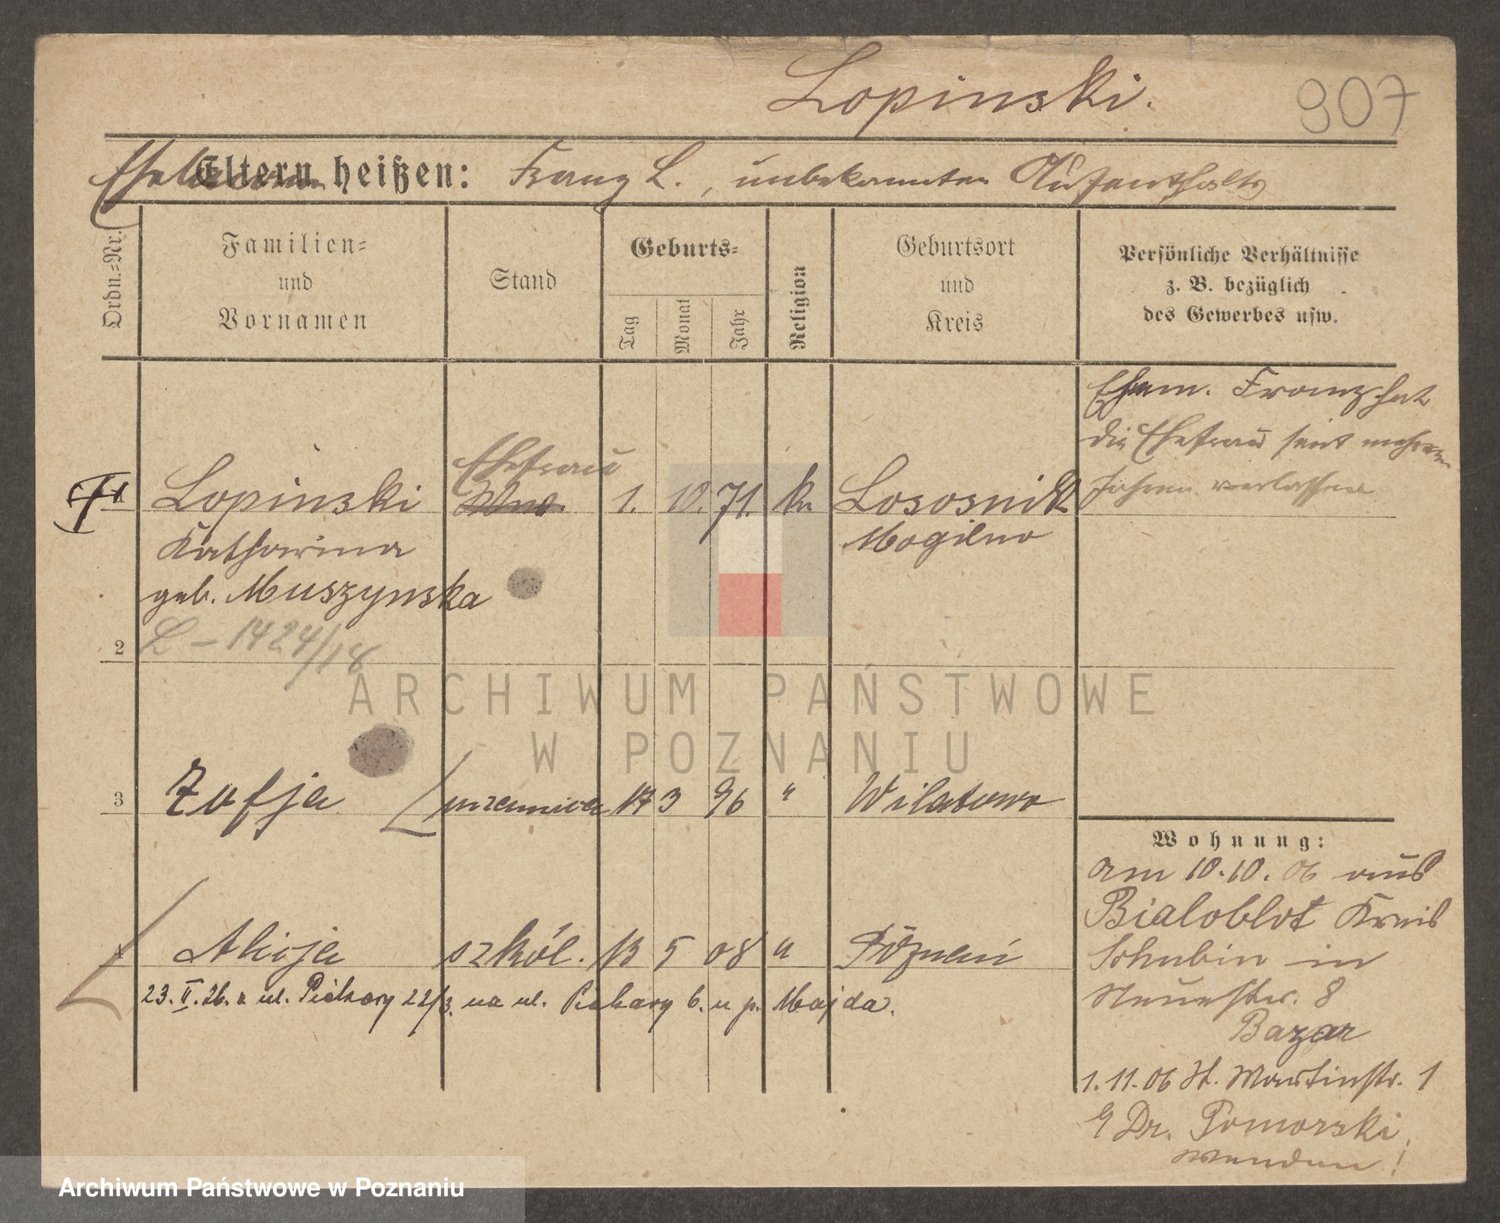 Lopinski.
907
Ehemann Eltern heißen: Franz L., unbekannten Aufenthalts
Ordn.=Nr.
Familien=
und
Vornamen
Stand
Geburts=
Tag
Monat
Jahr
Religion
Geburtsort
und
Kreis
Persönliche Verhältnisse
z. B. bezüglich
des Gewerbes usw.
Ehem. Franz hat
die Ehefrau seit mehreren
Jahren verlassen
Ehefrau
Lopinski Wwe 1. 10. 71. k. Lososnik
Katharina Mogilno
geb. Muszynska
2 L - 1424/18
ARCHIWUM PAŃSTWOWE
W POZNANIU
3 Zofja 17 3 96 " Wilatowo
Wohnung:
am 10.10.06 aus
Bialoblot Kreis
Schubin in
Neuestr. 8
Bazar
1.11.06 St. Martinstr. 1
Dr. Pomorski
wenden!
4 Alicja szkól. 13 5 08 " Poznań
23.II.26. z ul. Piekary 22/3. na ul. Piekary 6. u p. Majda.
Archiwum Państwowe w Poznaniu